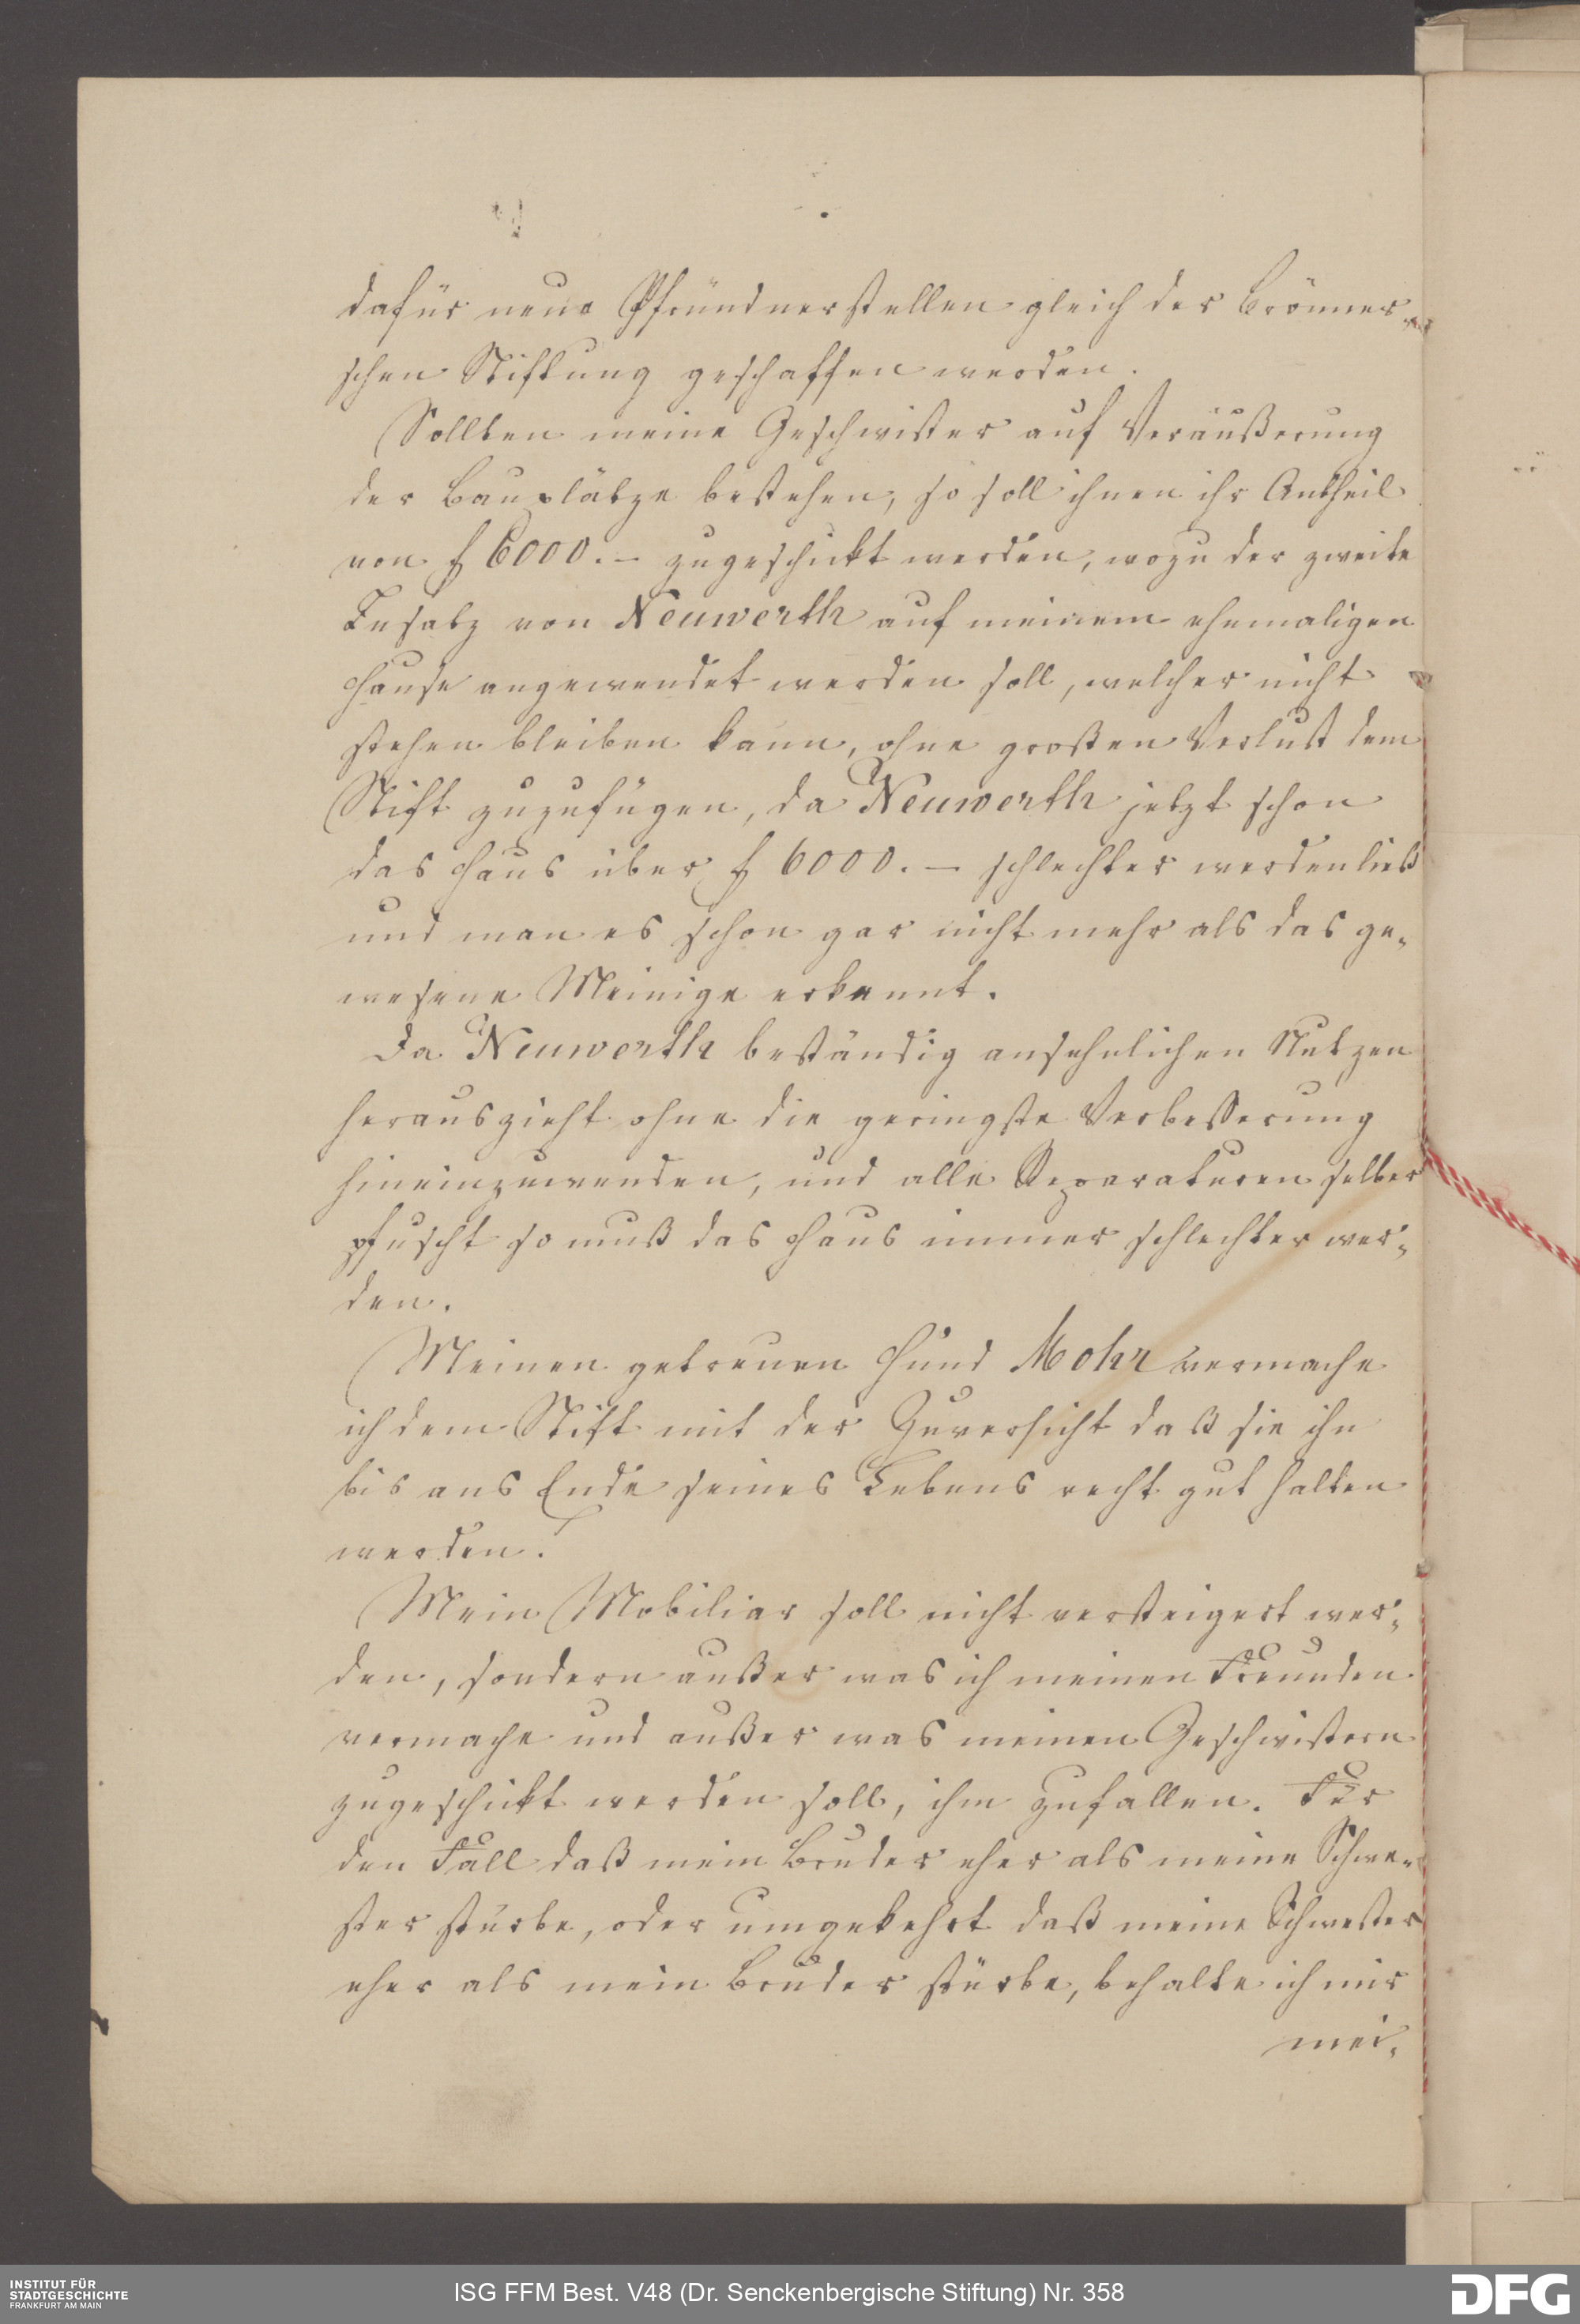 dafür neue Pfründnerstellen gleich der Brönner-
schen Stiftung geschaffen werden.
Sollten meine Geschwister auf Veräußerung
der Bauplätze bestehen, so soll ihnen ihr Antheil
von f 6000.— zugeschickt werden, wozu der zweite
Insatz von Neuwerth auf meinem ehemaligen
Hause angewendet werden soll, welcher nicht
stehen bleiben kann, ohne großen Verlust dem
Stift zuzufügen, da Neuwerth jetzt schon
das Haus über f 6000.— schlechter werden ließ
und man es schon gar nicht mehr als das ge-
wesene Meinige erkennt.
Da Neuwerth beständig ansehnlichen Nutzen
herauszieht ohne die geringste Verbesserung
hineinzuwenden, und alle Reparaturen selber
pfuscht so muß das Haus immer schlechter wer-
den.
Meinen getreuen Hund Mohr vermache
ich dem Stift mit der Zuversicht daß sie ihn
bis ans Ende seines Lebens recht gut halten
werden.
Mein Mobiliar soll nicht versteigert wer-
den, sondern außer was ich meinen Freunden
vermache und außer was meinen Geschwistern
zugeschickt werden soll, ihm zufallen. Für
den Fall daß mein Bruder eher als meine Schwe-
ster stürbe, oder umgekehrt daß meine Schwester
eher als mein Bruder stürbe, behalte ich mir
mei-
INSTITUT FÜR
STADTGESCHICHTE
FRANKFURT AM MAIN
ISG FFM Best. V48 (Dr. Senckenbergische Stiftung) Nr. 358
DFG